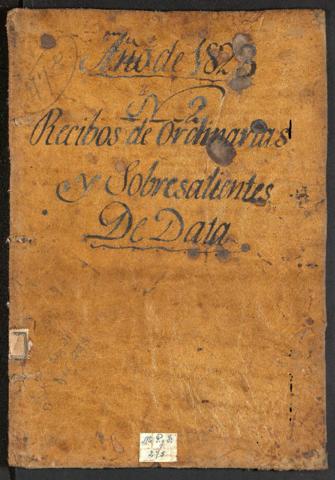 Año de 1823
N 2
Recibos de Ordinarias
y Sobresalientes
De Data
275